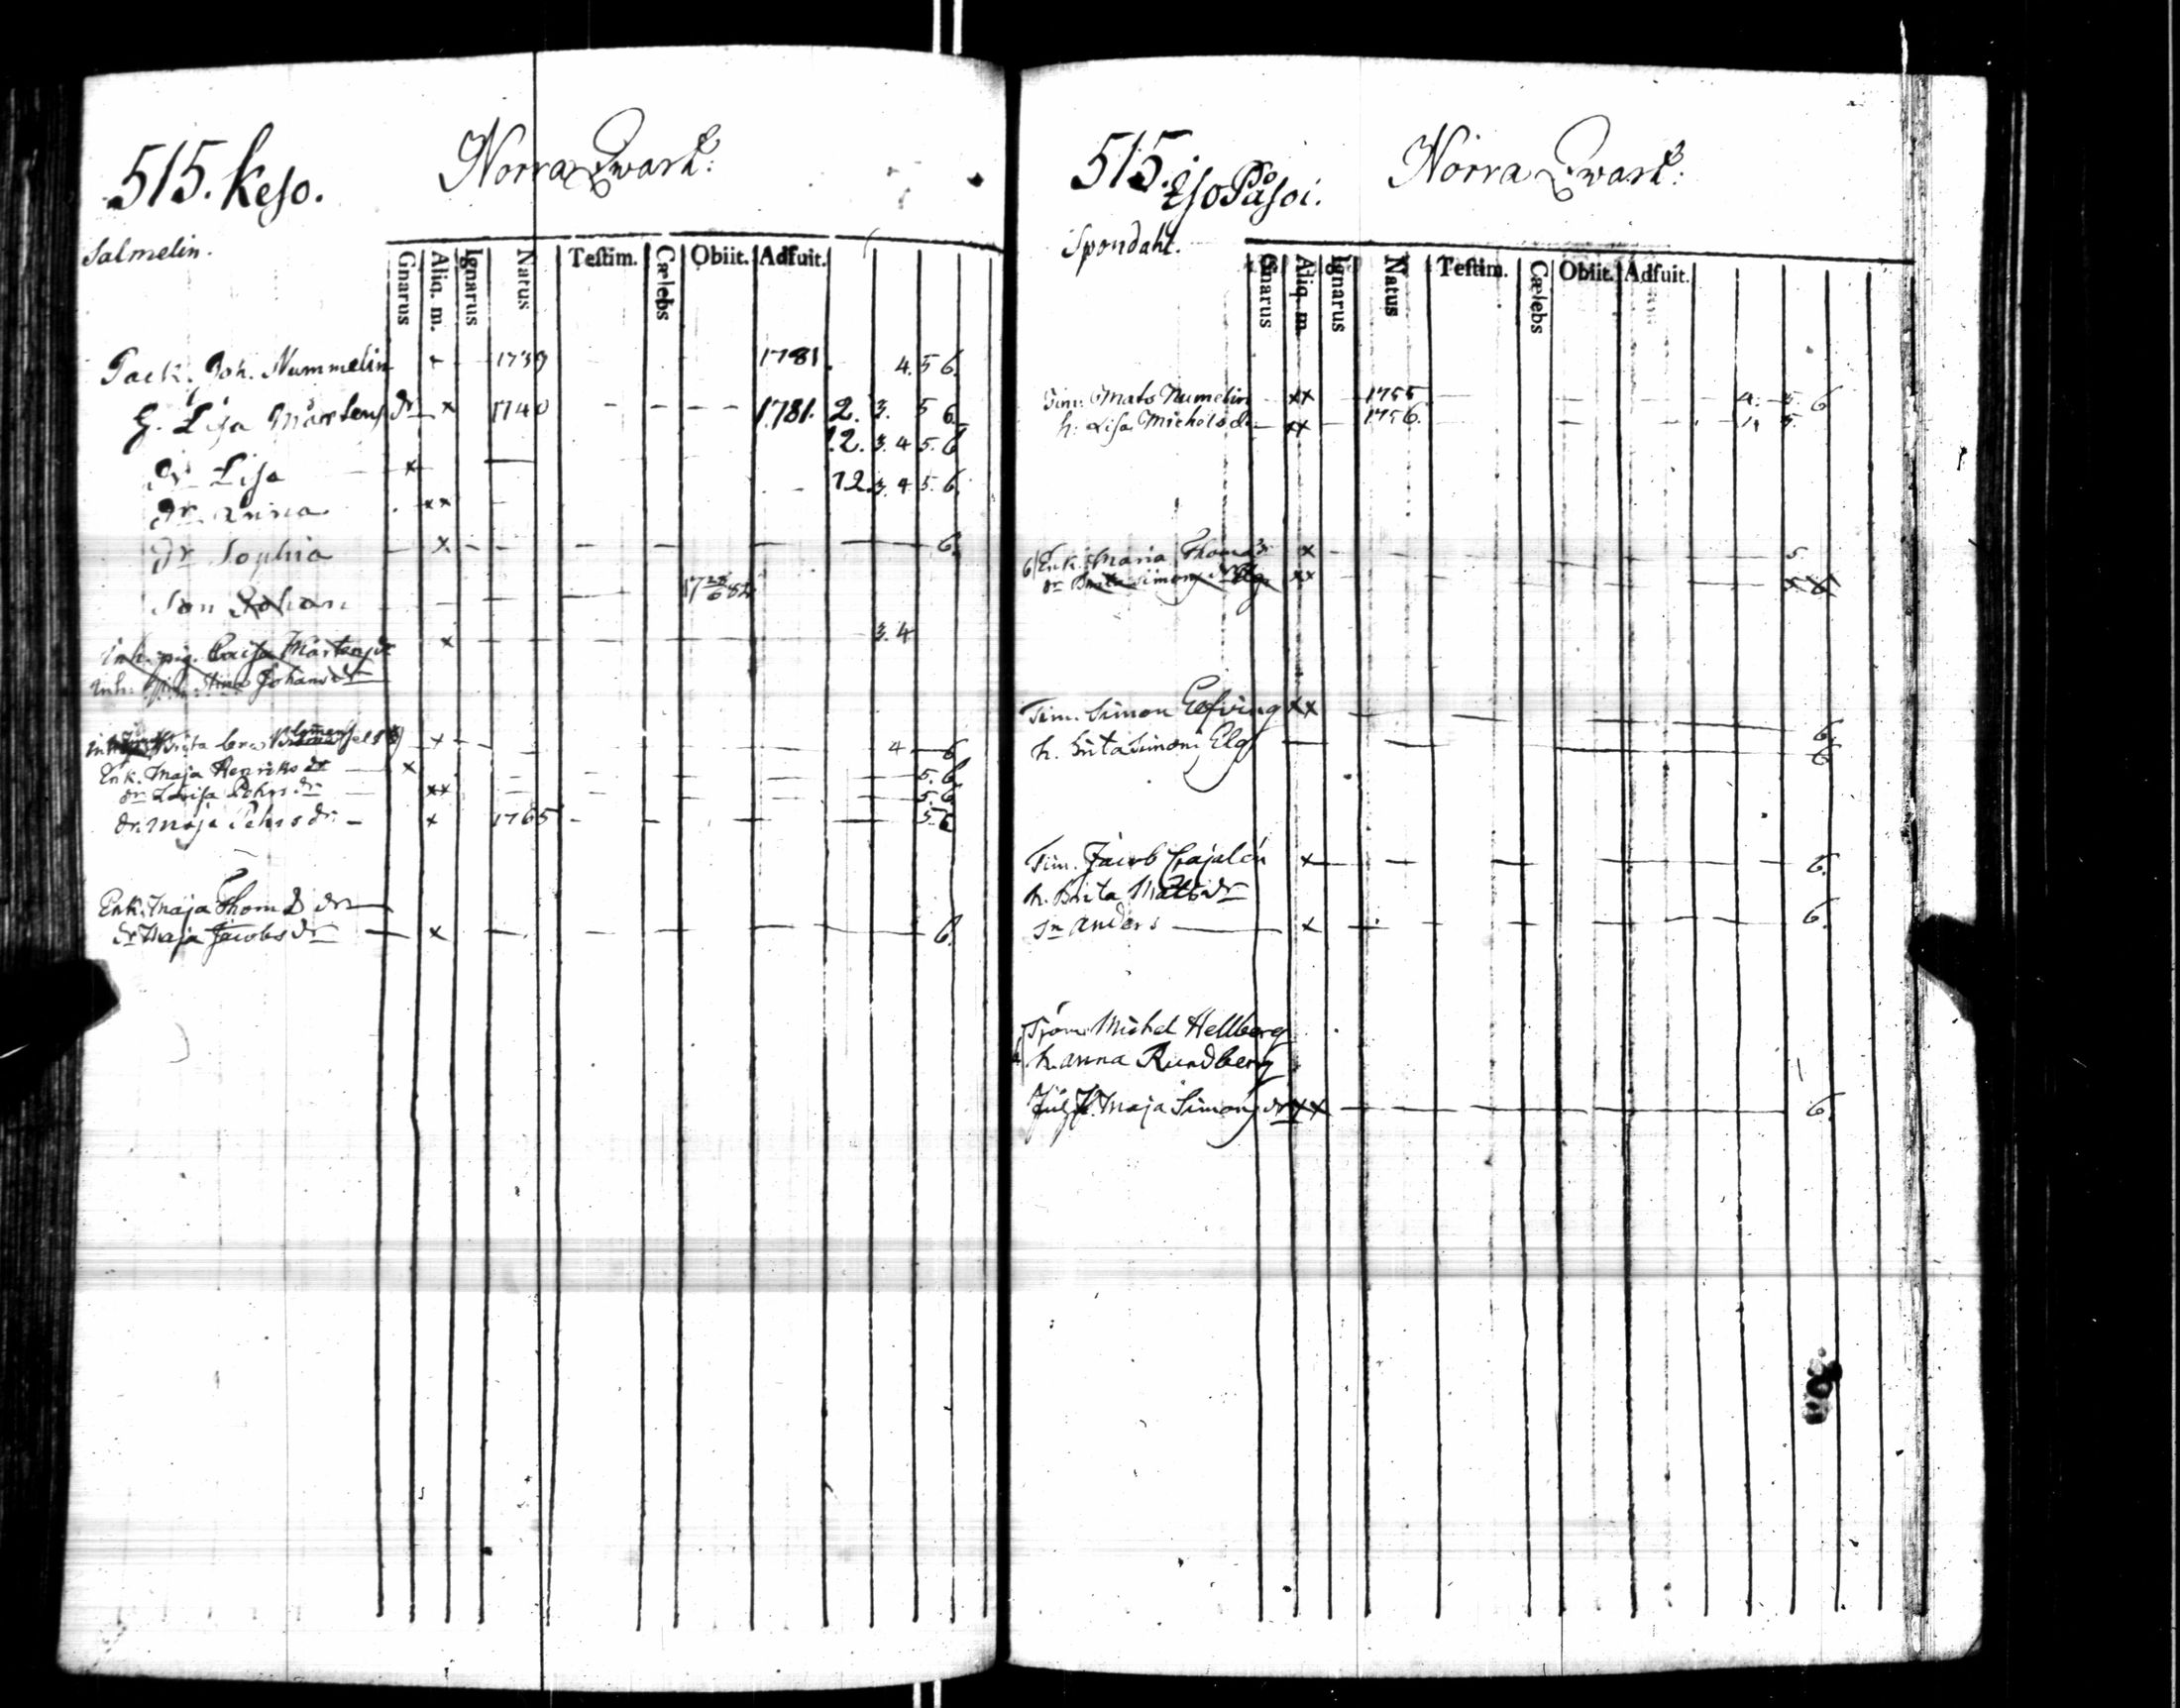 515. Keso. Norra Qwart:
Salmelin.
Gnarus Aliq. m. Ignarus Natus Testim. Cælebs Obiit. Adfuit.
Pack. Joh. Nummelin + 1739 1781. 4. 5 6.
H. Lisa Mårtens dr x 1740 - - - - 1781. 2. 3. 5 6
dr Lisa x — 12. 3. 4 5. 6
dr Anna xx 12. 3. 4 5. 6.
dr Sophia x - - - - - - 6.
Son Johan 17 82
inh. pig. Caisa Mårtens dr x 3. 4
inh: Johans dr
Brita x 4 — 6
Enk. Maja Henriks dr x 5. 6
dr Lovisa Pehrs dr xx 5. 6
dr. Maja Pehrs dr. x 1765 5. 6
Enk. Maja Thom dr
dr Maja Jacobs dr x 6.
515. Iso Påsoi. Norra Qwart:
Spondahl.
Gnarus Aliq. m. Ignarus Natus Testim. Cælebs Obiit. Adfuit.
Tim: Mats Numelin xx 1755 4. 5. 6
h: Lisa Michels dr xx 1756. 5.
6 Enk: Maria Thomas x 5
dr Brita Simons dr xx
Tim. Simon Elfving xx 6.
h. Brita Simons Elg 6
Tim. Jacob Cajalén x 6.
h. Brita Matts dr
sn Anders x 6.
Michel Hellberg
h. Anna Rundberg
Maja Simons dr xx 6.